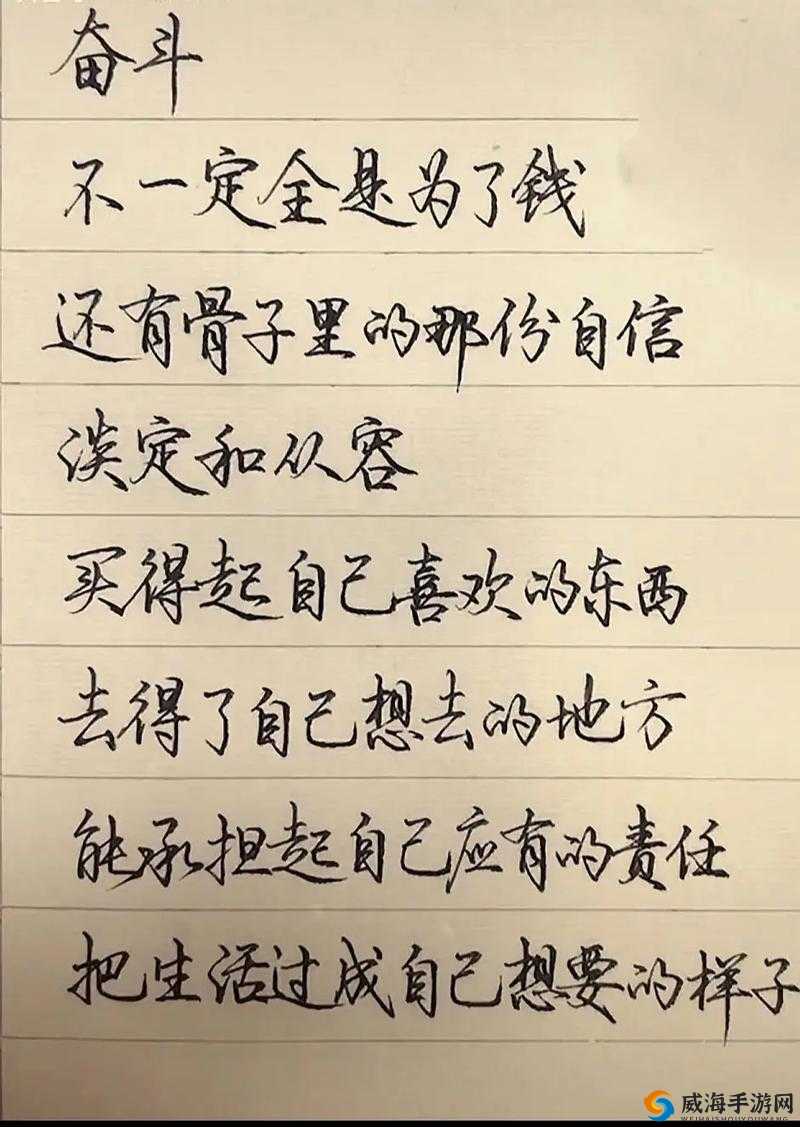 奋斗
不一定全是为了钱
还有骨子里的那份自信
淡定和从容
买得起自己喜欢的东西
去得了自己想去的地方
能承担起自己应有的责任
把生活过成自己想要的样子
威海手游网
WEIHAISHOUYOUWANG